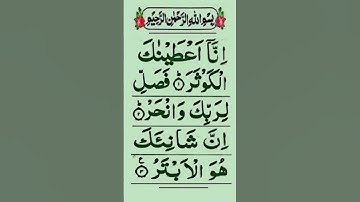 بِسْمِ اللّٰهِ الرَّحْمٰنِ الرَّحِيْمِ
اِنَّاۤ اَعْطَيْنٰكَ
الْكَوْثَرَ ؕ﴿۱﴾ فَصَلِّ
لِرَبِّكَ وَانْحَرْ ؕ﴿۲﴾
اِنَّ شَانِئَكَ
هُوَ الْاَبْتَرُ ﴿۳﴾